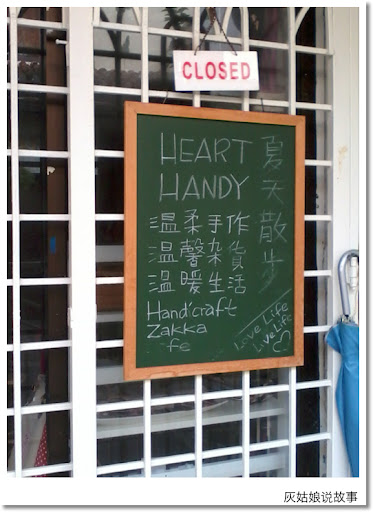 CLOSED
HEART
HANDY
夏天散步
温柔手作
温馨杂貨
温暖生活
Hand'craft
Zakka
fe
Love Life
Live Life
灰姑娘说故事